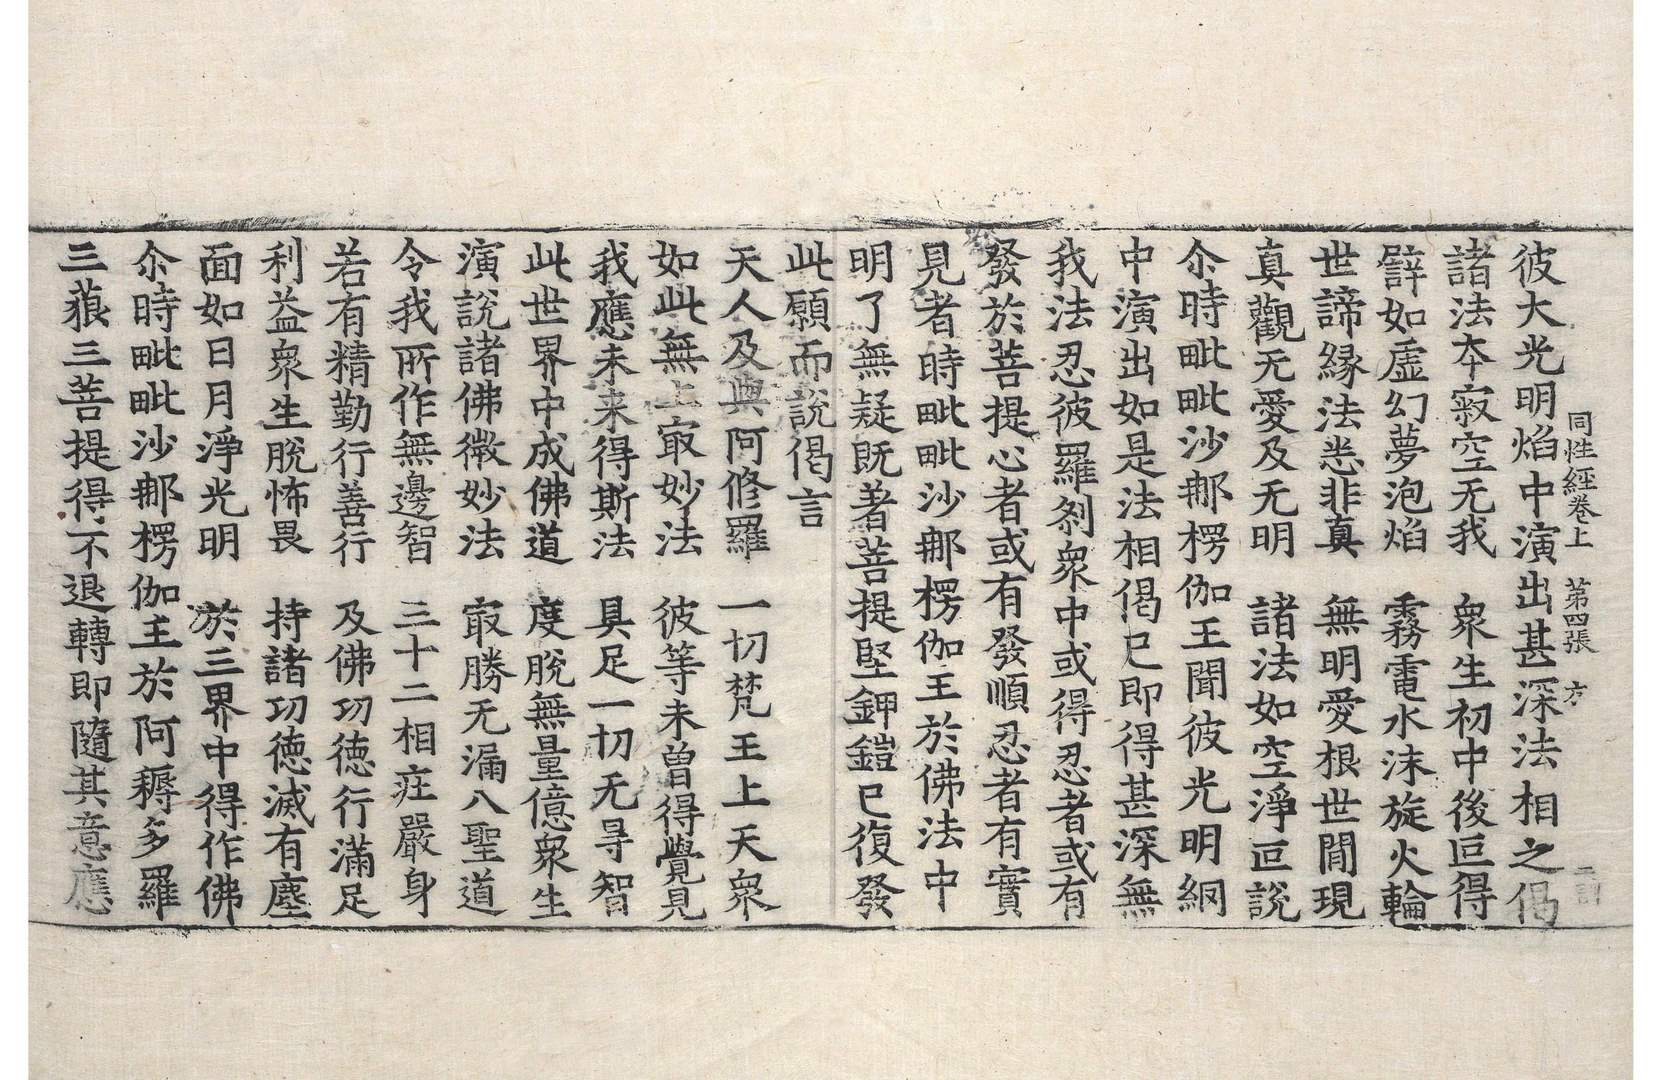 同性經卷上　第四張　方
彼大光明焰中演出甚深法相之偈
諸法夲寂空无我　衆生初中後叵得
譬如虛幻夢泡焰　霧電水沫旋火輪
世諦緣法悉非真　無明愛根世間現
真觀无愛及无明　諸法如空淨叵說
尒時毗毗沙那楞伽王聞彼光明網
中演出如是法相偈已即得甚深無
我法忍彼羅刹衆中或得忍者或有
發於菩提心者或有發順忍者有實
見者時毗毗沙那楞伽王於佛法中
明了無疑旣著菩提堅鉀鎧已復發
此願而說偈言
天人及與阿修羅　一切梵王上天衆
如此無上㝡妙法　彼等未曾得覺見
我應未来得斯法　具足一切无㝵智
此世界中成佛道　度脫無量億衆生
演說諸佛微妙法　㝡勝无漏八聖道
令我所作無邊智　三十二相莊嚴身
若有精勤行善行　及佛功德行滿足
利益衆生脫怖畏　持諸功德滅有塵
面如日月淨光明　於三界中得作佛
尒時毗毗沙那楞伽王於阿耨多羅
三藐三菩提得不退轉即隨其意應